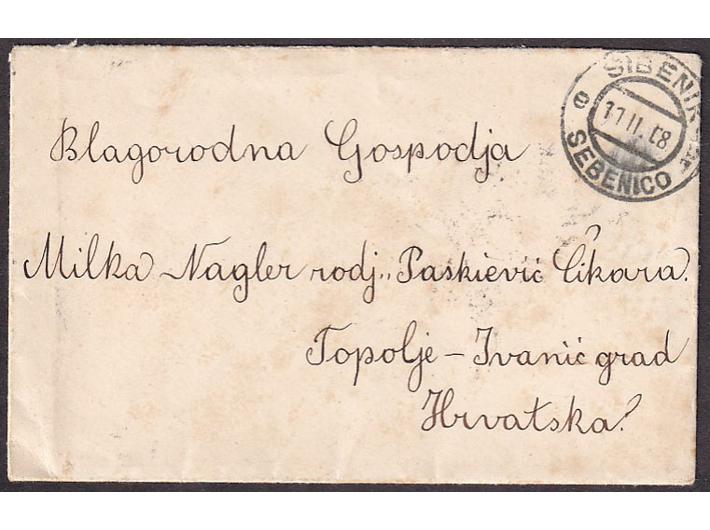 ŠIBENIK
11 II. 08
SEBENICO
e
Blagorodna Gospodja
Milka Nagler rodj., Paskiević Čikara.
Topolje – Ivanić grad
Hrvatska!